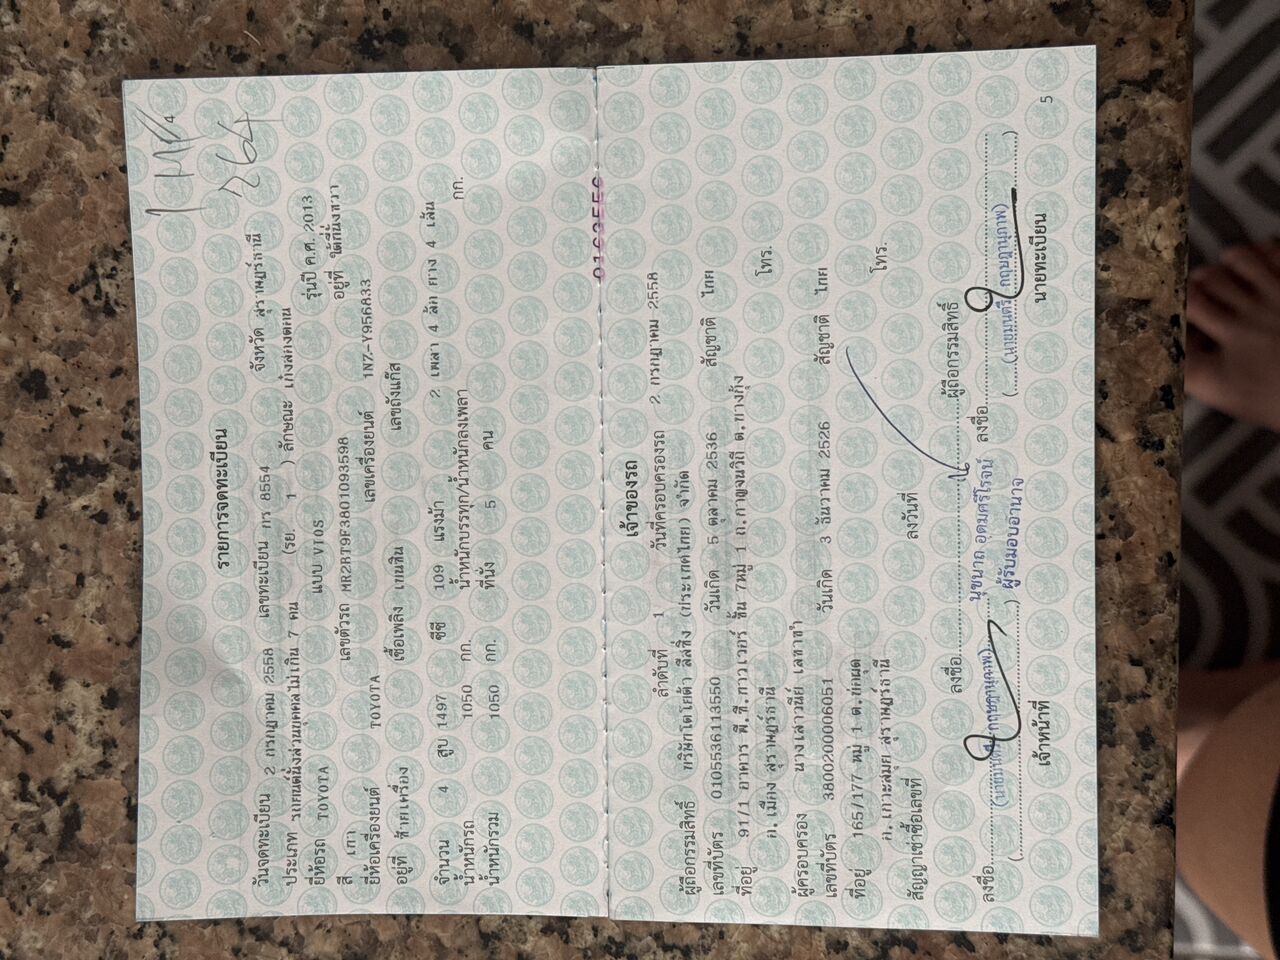 4
1
264
รายการจดทะเบียน
วันจดทะเบียน 2 กรกฎาคม 2558 เลขทะเบียน กร 8554 จังหวัด สุราษฎร์ธานี
ประเภท รถยนต์นั่งส่วนบุคคลไม่เกิน 7 คน (รย. 1 ) ลักษณะ เก๋งสองตอน
ยี่ห้อรถ TOYOTA แบบ VIOS รุ่นปี ค.ศ. 2013
สี เทา เลขตัวรถ MR2BT9F3801093598 อยู่ที่ ใต้ที่นั่งขวา
ยี่ห้อเครื่องยนต์ TOYOTA เลขเครื่องยนต์ 1NZ-Y956833
อยู่ที่ ซ้ายเครื่อง เชื้อเพลิง เบนซิน เลขถังแก๊ส
จำนวน 4 สูบ 1497 ซีซี 109 แรงม้า 2 เพลา 4 ล้อ ยาง 4 เส้น
น้ำหนักรถ 1050 กก. น้ำหนักบรรทุก/น้ำหนักลงเพลา กก.
น้ำหนักรวม 1050 กก. ที่นั่ง 5 คน
เจ้าของรถ
ลำดับที่ 1 วันที่ครอบครองรถ 2 กรกฎาคม 2558
ผู้ถือกรรมสิทธิ์ บริษัทโตโยต้า ลีสซิ่ง (ประเทศไทย) จำกัด
เลขที่บัตร 0105536113550 วันเกิด 5 ตุลาคม 2536 สัญชาติ ไทย
ที่อยู่ 91/1 อาคาร พี.ซี.ทาวเวอร์ ชั้น 7หมู่ 1 ถ.กาญจนวิถี ต.บางกุ้ง
อ.เมือง สุราษฎร์ธานี โทร.
ผู้ครอบครอง นางเสาวนีย์
เลขที่บัตร 3800200006051 วันเกิด 3 ธันวาคม 2526 สัญชาติ ไทย
ที่อยู่ 165/177 หมู่ 1 ต.บ่อผุด
อ.เกาะสมุย สุราษฎร์ธานี โทร.
สัญญาเช่าซื้อเลขที่ ลงวันที่
ลงชื่อ ผู้ถือกรรมสิทธิ์
นุชนาถ อุดมศรีโรจน์
ผู้รับมอบอำนาจ
ลงชื่อ ลงชื่อ
(นายมนตรี กฤษฎานุภาพ) (นายมนตรี กฤษฎานุภาพ)
เจ้าหน้าที่ นายทะเบียน
5